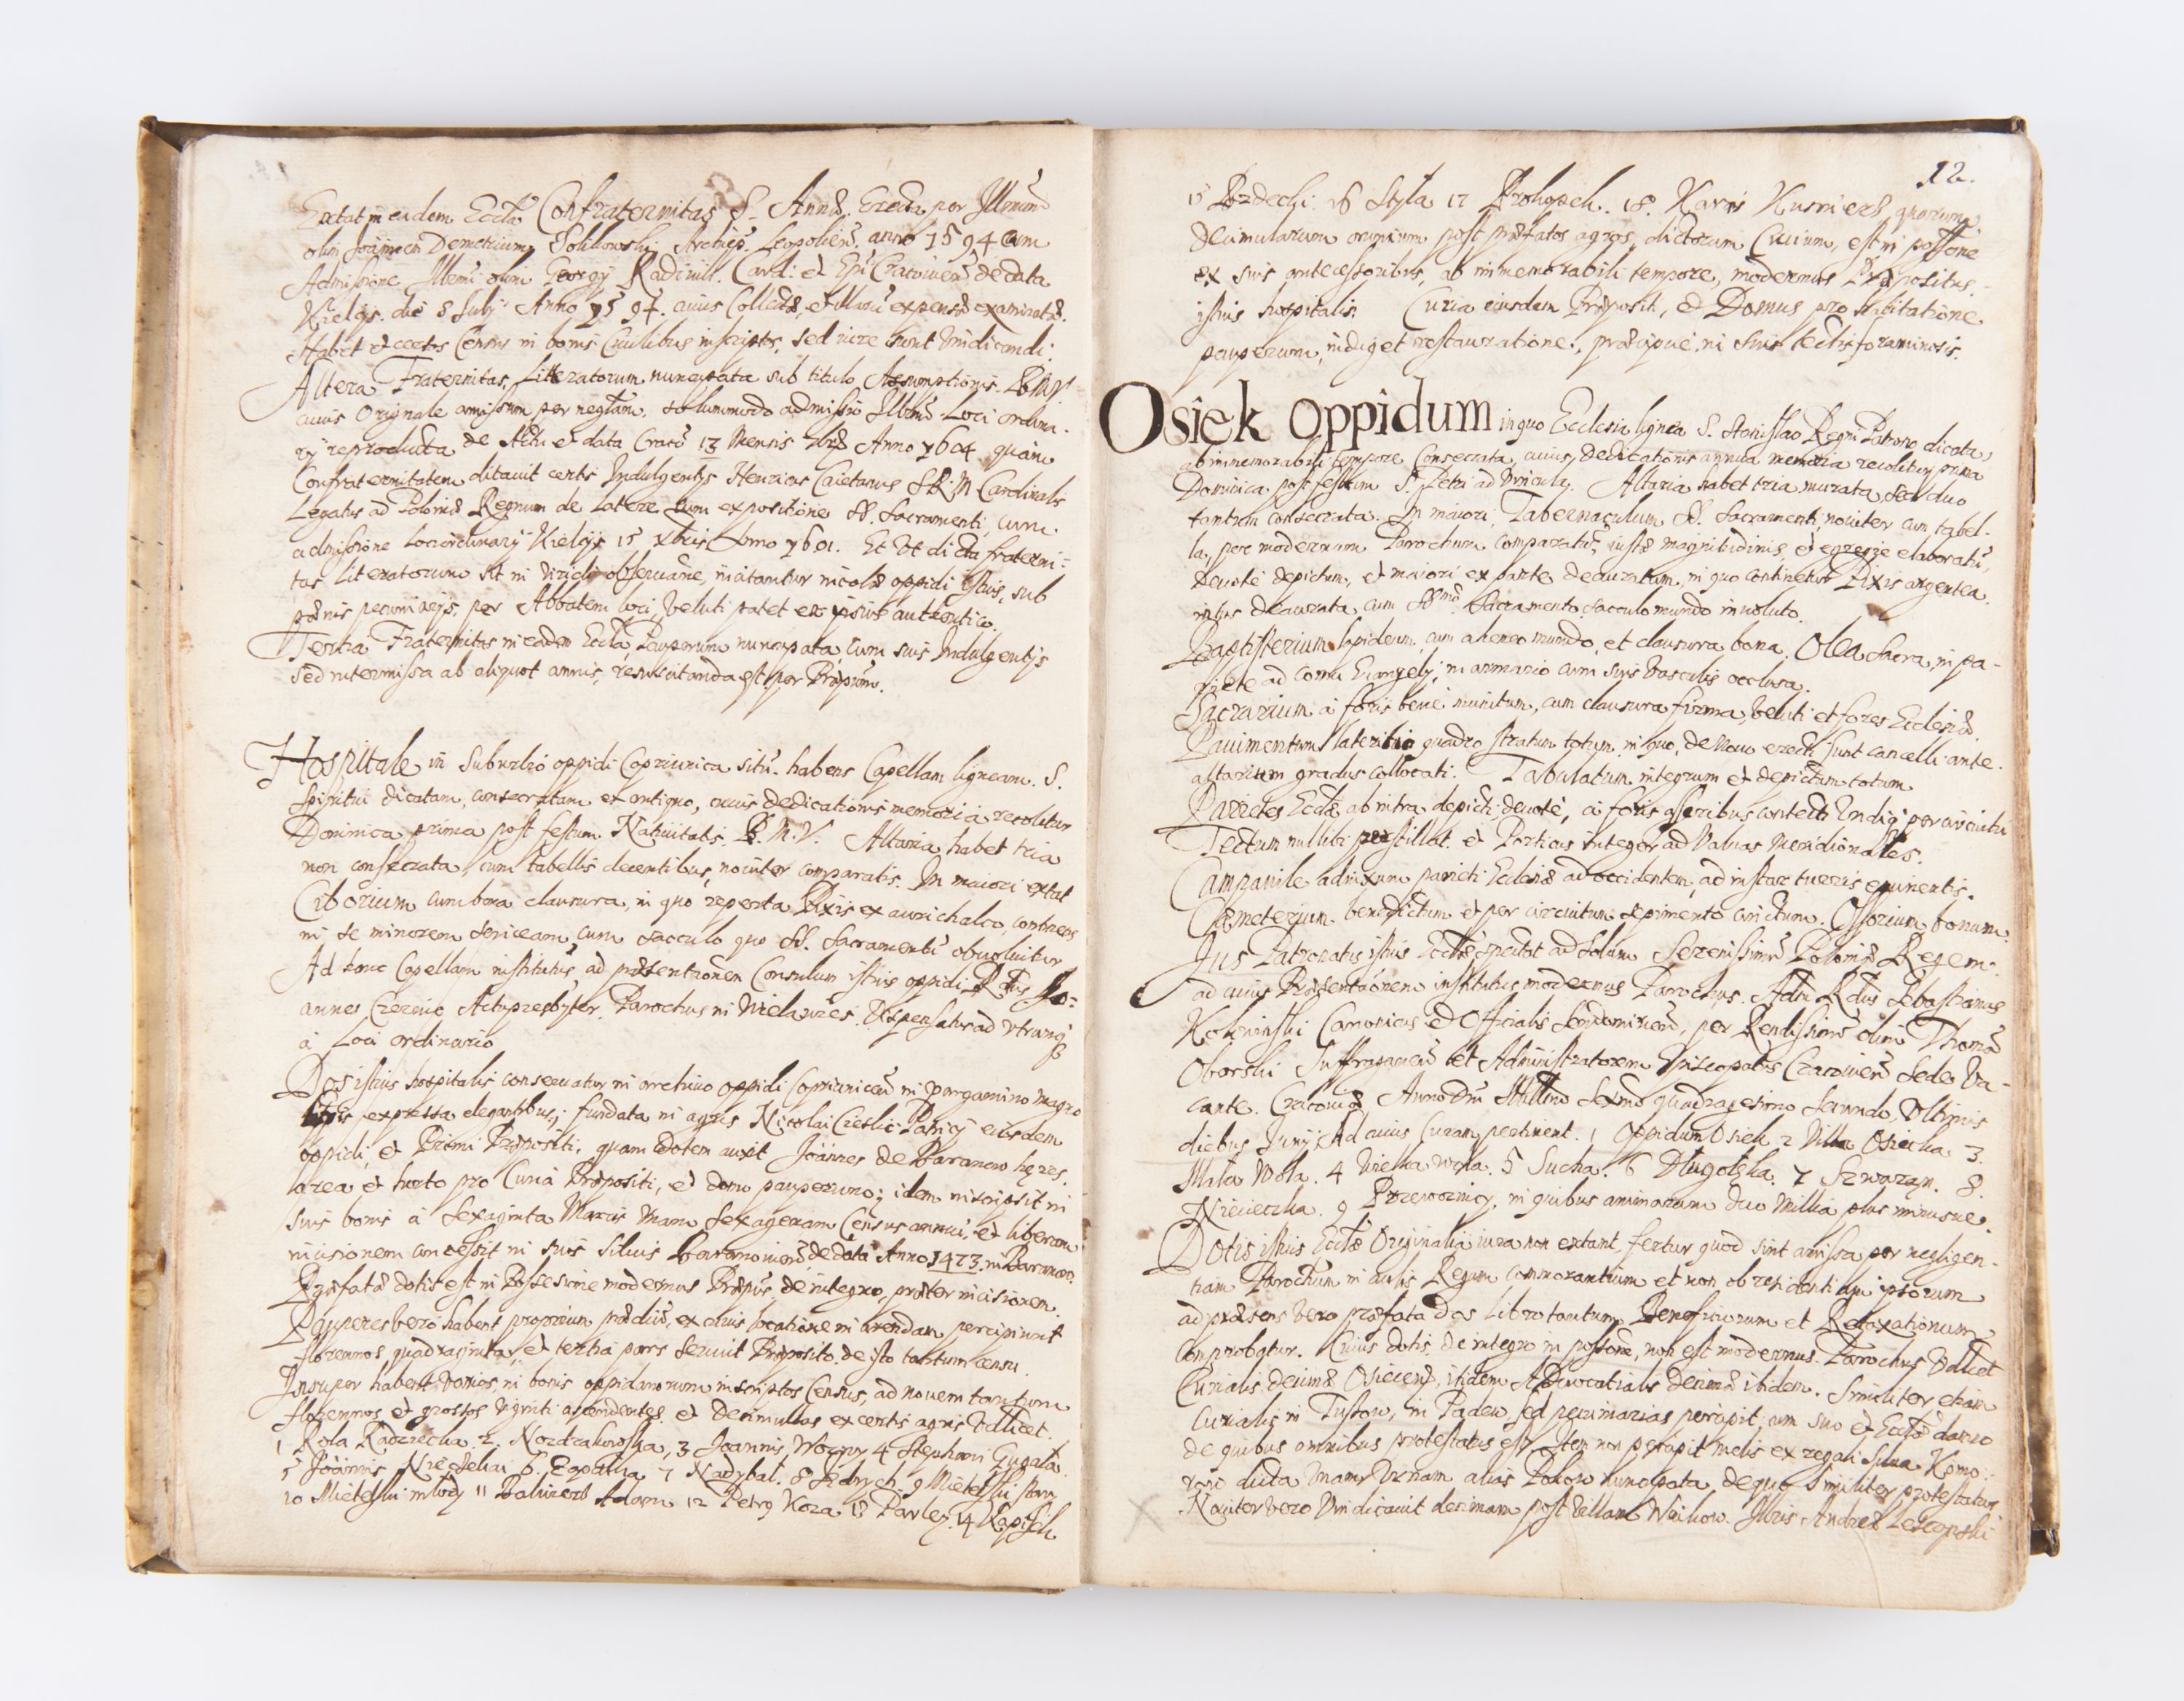 Extat in eadem Eccla Confraternitas S. Annæ Erecta per Illmum
olim Joannem Demetrium Solikowski Archiep. Leopolien. anno 1594 cum
Admissione Illmi olim Georgij Radiuill. Card: et Epi Cracouien de data
Kielcijs. die 8 July Anno 1597. cuius Collectæ, et illarū expensæ examinatæ.
Habet et certos Census in bonis Ciuilibus inscriptos, sed iure sunt Vindicandi.
Altera Fraternitas, Litteratorum nuncupata sub titulo Assumptionis B.M.V.
cuius Originale amissum per neglam. solummodo admissio Illmi Loci ordina-
rij reproducta de Actu et data Cracō 13 Mensis Anno 1604 quam
Confraternitatem ditauit certis Indulgentijs Henricus Caietanus S.R.M Cardinalis
Legatus ad Poloniæ Regnum de Latere cum expositione SS. Sacramenti, cum
admissione Loci ordinarij Kielcijs 15 Xbris Anno 1601. Et Vt dicta fraterni-
tas literatorum sit in Viridi obseruane, incitantur incolæ oppidi istius, sub
pœnis pecuniarijs per Abbatem loci, veluti patet ex ipsius autentico.
Tertia Fraternitas in eadem Eccla, Pauperum nuncupata, cum suis Indulgentijs
sed intermissa ab aliquot annis, resuscitanda est per Præpūm.
Hospitale in Suburbio oppidi Copriunica sitū. habens Capellam ligneam. S.
Spiritui dicatam, consecratam ex antiquo, cuius dedicationis memoria recolitur
Dominica prima post festum Natiuitatis. B. M. V. Altaria habet tria
non consecrata, cum tabellis decentibus, nouiter comparatis. In maiori extat
Ciborium cum bona clausura, in quo reperta Pixis ex aurichalco, continens
in se minorem sericeam, cum sacculo quo SS. Sacramentū obuoluitur
Ad hanc Capellam institutus, ad præsentationem Consulum istius oppidi, Rdus Jo-
annes Czerwic Actupresbyter. Parochus in Wielawies. Dispensatus ad Vtramq
à Loci ordinario
Dos istius hospitalis conseruatur in archiuo oppidi Copriunicen in pargamino magno
litteris expressa elegantibus, fundata in agris Nicolai Cieslic Patricij eiusdem
oppidi, et Primi Præpositi, quam dotem auxit Joannes de Baranow hæres.
area et horto pro Curia Præpositi, et domo pauperum; idem inscripsit in
suis bonis à Sexaginta Marcis Vnam Sexagenam Census annui, et liberam
incisionem concessit in suis siluis Baranouien, de data Anno 1473. in Baranow.
Præfatæ dotis est in Possessione modernus Præpūs, de integro, præter incisionem.
Pauperes verò habent proprium prædiū, ex cuius locatione in arendam percipiunt
florenos quadraginta, et tertia pars seruit Præposito de isto tantum censu.
Insuper habent varios, in bonis oppidanorum inscriptos Census, ad nouem tantum
florenos et grossos viginti ascendentes. et Decimulas ex certis agris Vdlicet.
1 Rola Radziecka. 2. Nozdrakowska, 3 Joannis Wozny 4 Stephani Gugała.
5 Joannis Niedzelia 6. Zopałka 7 Nadybal. 8 Jedrych. 9 Mietelski stary
10 Mietelski młody 11 Balwierb Adam 12 Petrij Koza 13 Parley. 14 Kapisch
12.
15 Brzdechi. 16 Styla 17 Prokopek. 18. Karys Kusnierz, quorum
decimularum omnium post præfatos agros dictorum Ciuium, est in possne
ex suis antecessoribus, ab immemorabili tempore, modernus Præpositus.
istius hospitalis. Curia eiusdem Præpositi, et Domus pro habitatione
pauperum, indiget restauratione, præcipue, in suis tectis foraminosis.
Osiek Oppidum in quo Ecclesia lignea S. Stanislao Regni Patrono dicata,
ab immemorabili tempore Consecrata, cuius dedicationis annua memoria recolitur prima
Dominica post festum S. Petri ad Vincula. Altaria habet tria murata sed duo
tantum consecrata. In maiori, Tabernaculum SS. Sacramenti, nouiter cum tabel-
la, per modernum Parochum comparatū, iustæ magnitudinis, et egregie elaboratū,
deuotè depictum, et maiori ex parte deauratum, in quo continetur Pixis argentea
intus deaurata, cum SSmo Sacramento sacculo mundo inuoluto.
Baptisterium lapideum, cum aheneo mundo, et clausura bona. Olea Sacra, in pa-
riete ad cornu Euangelij, in armario cum suis Vasculis occlusa.
Sacrarium à foris bene munitum, cum clausura firma, veluti et fores Ecclesiæ.
Pauimentum lateritio quadro stratum totum, in quo, de nouo erecti sunt cancelli ante
altarium gradus collocati. Tabulatum integrum et depictum totum
Parietes Eccliæ ab intra depicti deuotè, à foris asseribus contecti Vndiq per circuitū
Tectum nullibi perstillat. et Porticus integer ad Valuas Meridionales.
Campanile adnixum parieti Ecclesiæ ad occidentem, ad instar turris eminentis.
Cæmeterium benedictum et per circuitum sepimento cinctum. Ossorium bonum.
Jus Patronatus istius Eccliæ spectat ad solum Serenissimū Poloniæ Regem.
ad cuius Præsentationem institutus modernus Parochus. Adm Rdus Sebastianus
Kokwinski Canonicus et Officialis Sendomirien, per Rendissimū olim Thomā
Oborski Suffraganeū et Administratorem Episcopatus Cracouien Sede Va-
cante. Cracouiæ Anno Dni Millmo Sexmo quadragesimo Secundo, Vltimis
diebus Junij. Ad cuius Curam pertinent. 1 Oppidum Osiek 2 Villa Osiecka 3.
Mała Wola. 4 Wielka Wola. 5 Sucha. 6 Długołęka. 7 Szwarąn. 8.
Niekiecka. 9 Przewoznicy. in quibus animarum duo Millia plus minusue.
Dotis istius Eccliæ Originalia iura non extant, fertur quod sint amissa per negligen-
tiam Parochum in aulis Regum commorantium et non ob residentiam ipsorum
ad præsens verò præfata dos libro tantum Beneficiorum et Retaxationum
Comprobatur. Cuius dotis de integro in possone, non est modernus Parochus Vdlicet
Curialis decimæ Osiecen, itidem Aduocatialis decimæ ibidem. Similiter etiam
Curialis in Tustow, in Padew, sed pecuniarias percipit, cum suo et Eccliæ damno
de quibus omnibus protestatus est. Item non percipit mellis ex regali silua Komo-
rne dicta Vnam Vrnam aliàs Pokow nuncupata de quo similiter protestatus
Nouiter verò Vindicauit decimam post Villam Wnikow. Illris Andreæ Leszczynski